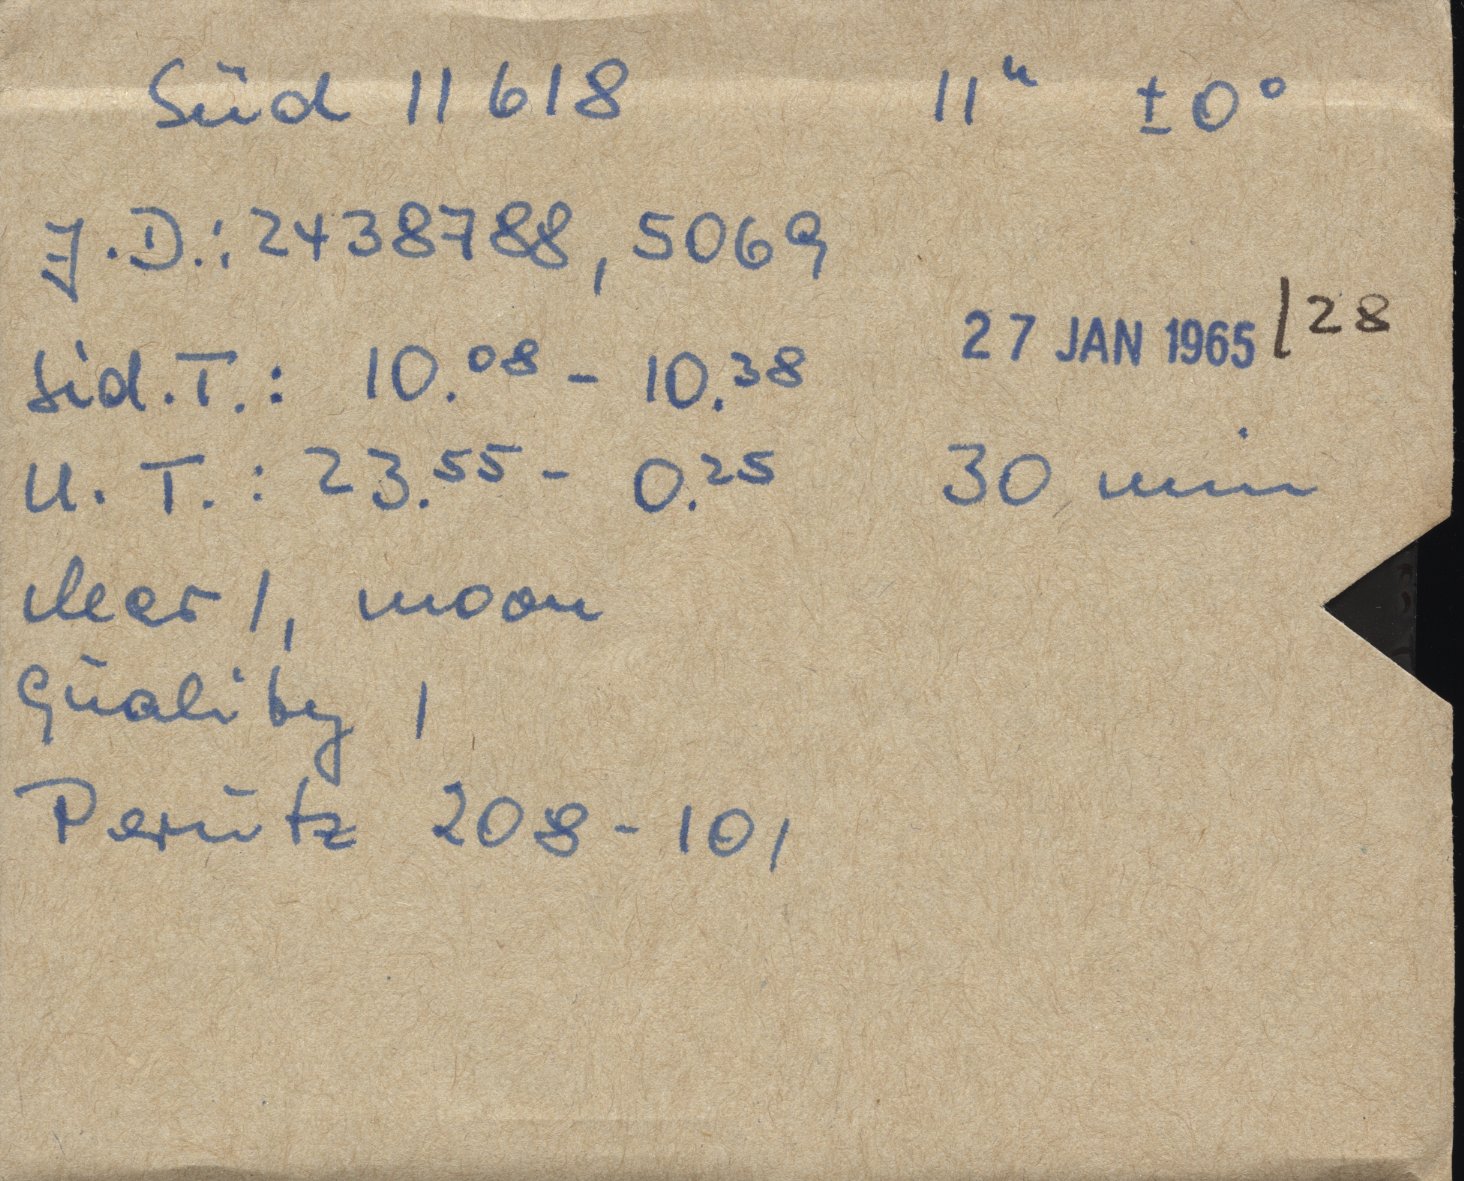 Süd 11618 11ʰ ±0°
J.D.: 2438788,5069
27 JAN 1965/28
Sid.T.: 10.⁰⁸ - 10.³⁸
U.T.: 23.⁵⁵ - 0.²⁵ 30 min
clear 1, moon
Quality 1
Perutz 208-101